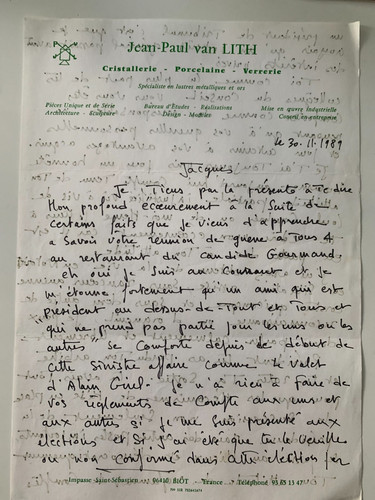 Jean-Paul van LITH
Cristallerie - Porcelaine - Verrerie
Spécialiste en lustres métalliques et ors
Pièces Unique et de Série
Architecture - Sculpture
Bureau d'Etudes - Réalisations
Design - Modèles
Mise en œuvre industrielle
Conseil en entreprise
le 30.11.1989
Jacques
Je Tiens par la présente à Te dire
Mon profond écœurement à la Suite de
certains faits que je viens d'apprendre
a Savoir votre réunion de guerre à Tous 4
au restaurant du Candide Gourmand.
eh oui je Suis au Courant et je
m'étonne fortement qu'un ami qui est
"président au dessus de Tout et Tous et
qui ne prend pas partie pour les uns ou les
autres" se comporte depuis le début de
cette Sinistre affaire comme le valet
d'Alain je n'ai rien à faire de
vos règlements de Compte aux uns et
aux autres si je me suis présenté aux
elections et Si j'ai été que tu le veuille
ou non conforme dans cette election par
Impasse Saint-Sébastien 06410 BIOT - France Téléphone 93 65 13 47